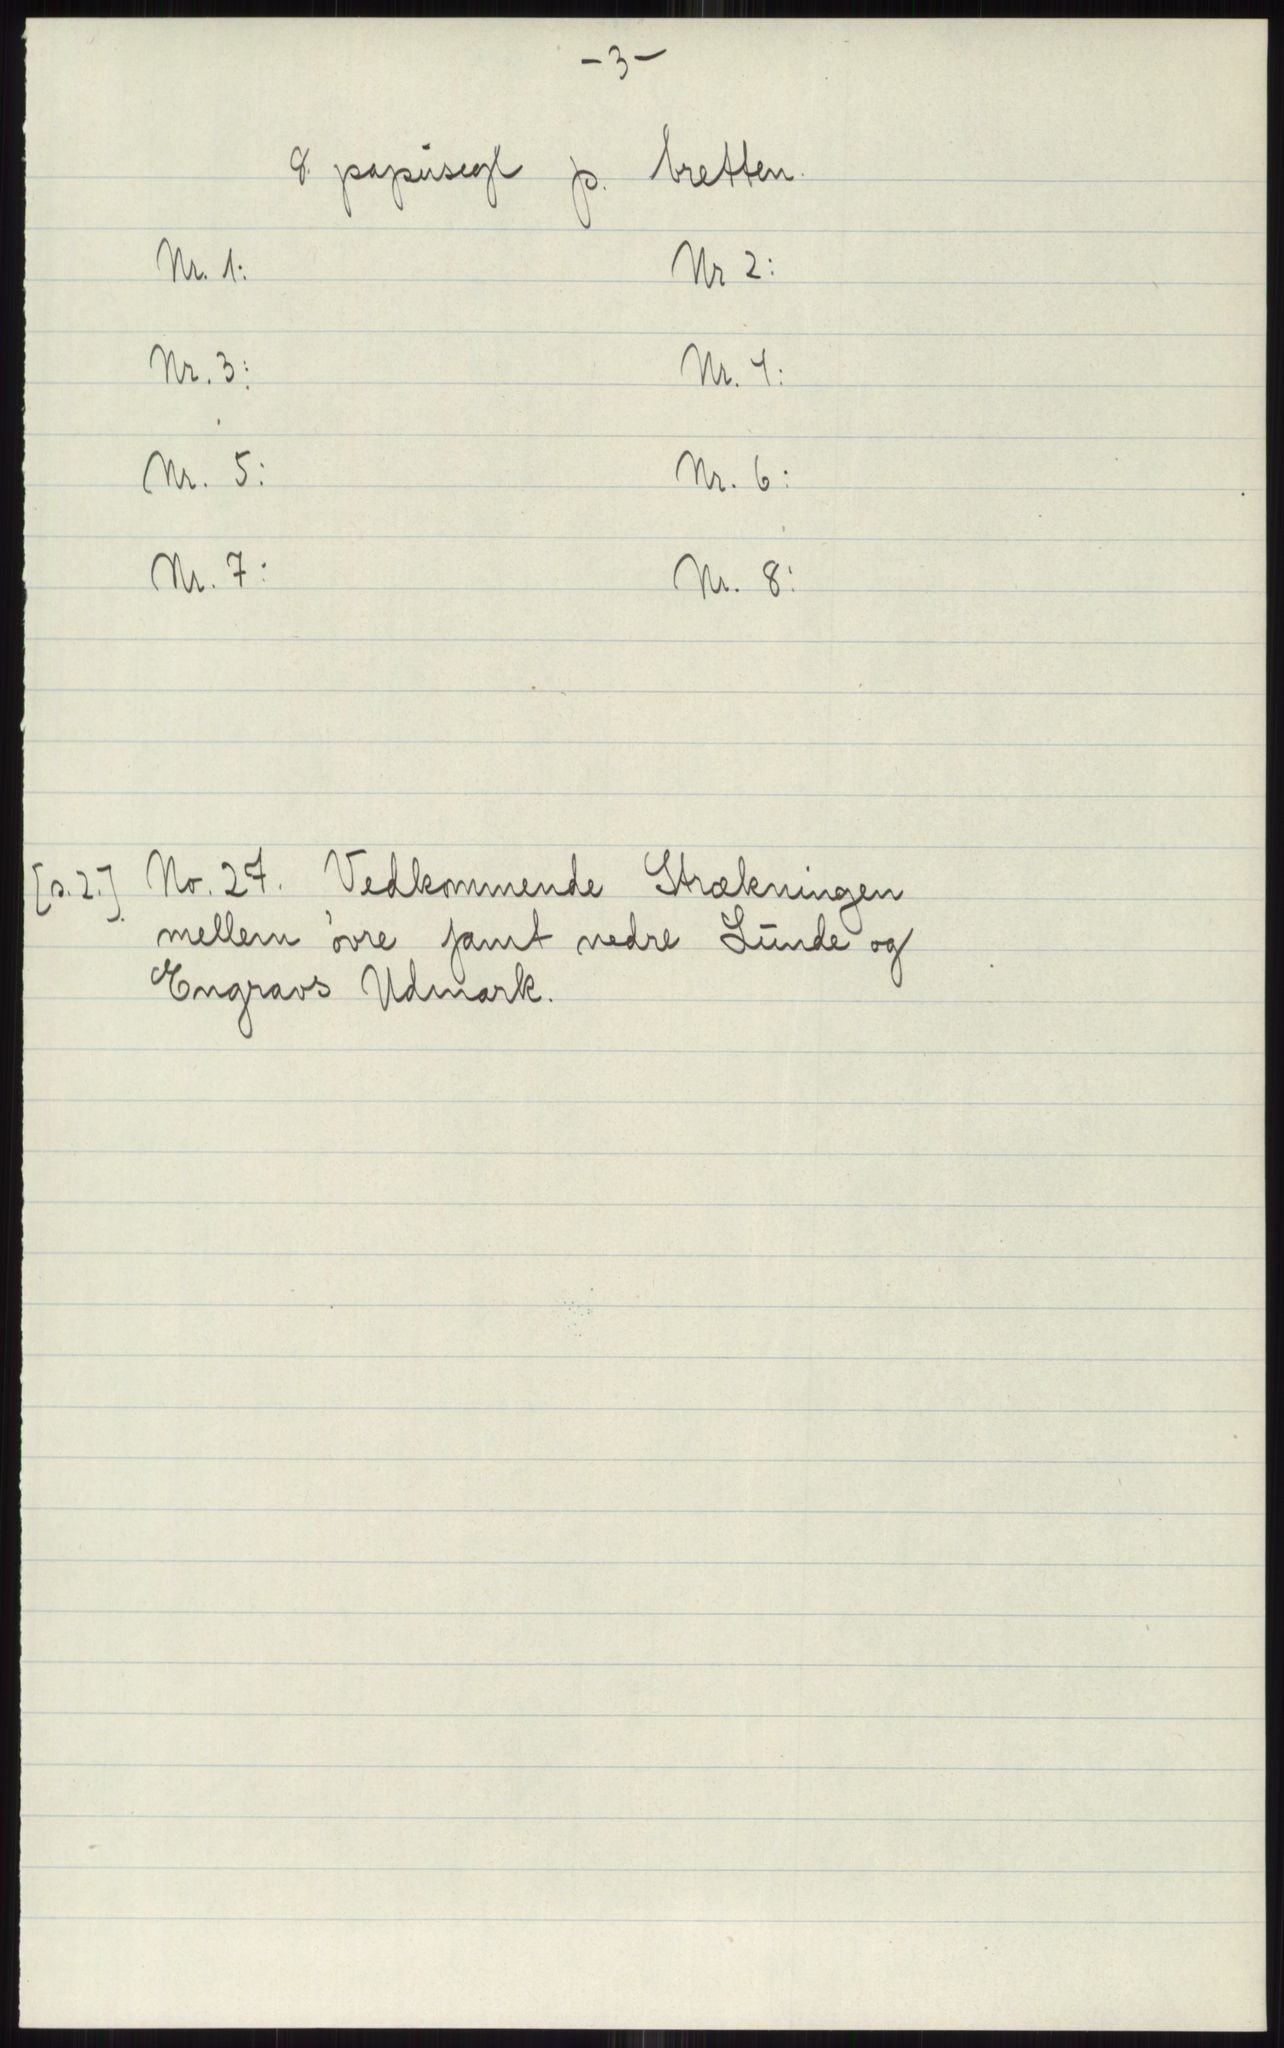 - 3 -
8 papirsegl p. bretten.
Nr. 1: Nr 2:
Nr. 3: Nr. 4:
Nr. 5: Nr. 6:
Nr. 7: Nr. 8:
[s. 2.] No. 27. Vedkommende Strækningen
mellem øvre samt nedre Lunde og
Engravs Udmark.